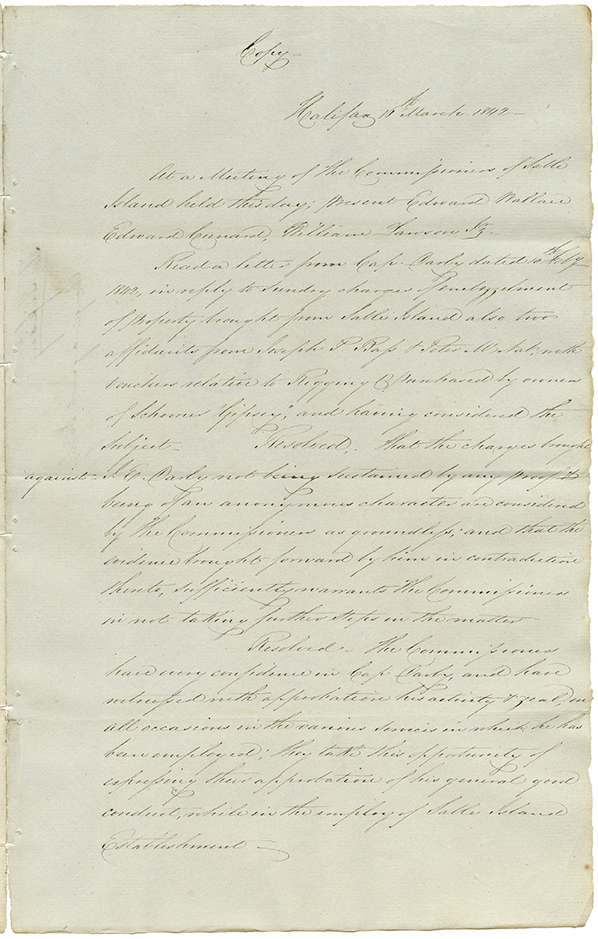 Copy
Halifax 10th March 1842
At a Meeting of the Commissioners of Sable
Island held this day; present Edward Wallace
Edward Cunard, William Lawson Jr.
Read a letter from Cap. Darby dated 10th Feby
1842, in reply to Sundry charges of embezzlement
of Property brought from Sable Island also two
affidavits from Joseph P. Ross & Peter M. Nab, with
Vouchers relative to Rigging & purchased by owners
of Schooner "Gipsey", and having considered the
Subject - Resolved, That the charges brought
against J. E. Darby not being sustained by any proof &
being of an anonymous character are considered
by the Commissioners as groundless; and that the
evidence brought forward by him in contradiction
thereto, sufficiently warrants the Commissioners
in not taking further steps in the matter
Resolved - the Commissioners
have every confidence in Cap Darby, and have
witnessed with approbation his activity & zeal, on
all occasions in the various services in which he has
been employed; they take this opportunity of
expressing their approbation of his general good
conduct, while in the employ of Sable Island
Establishment -